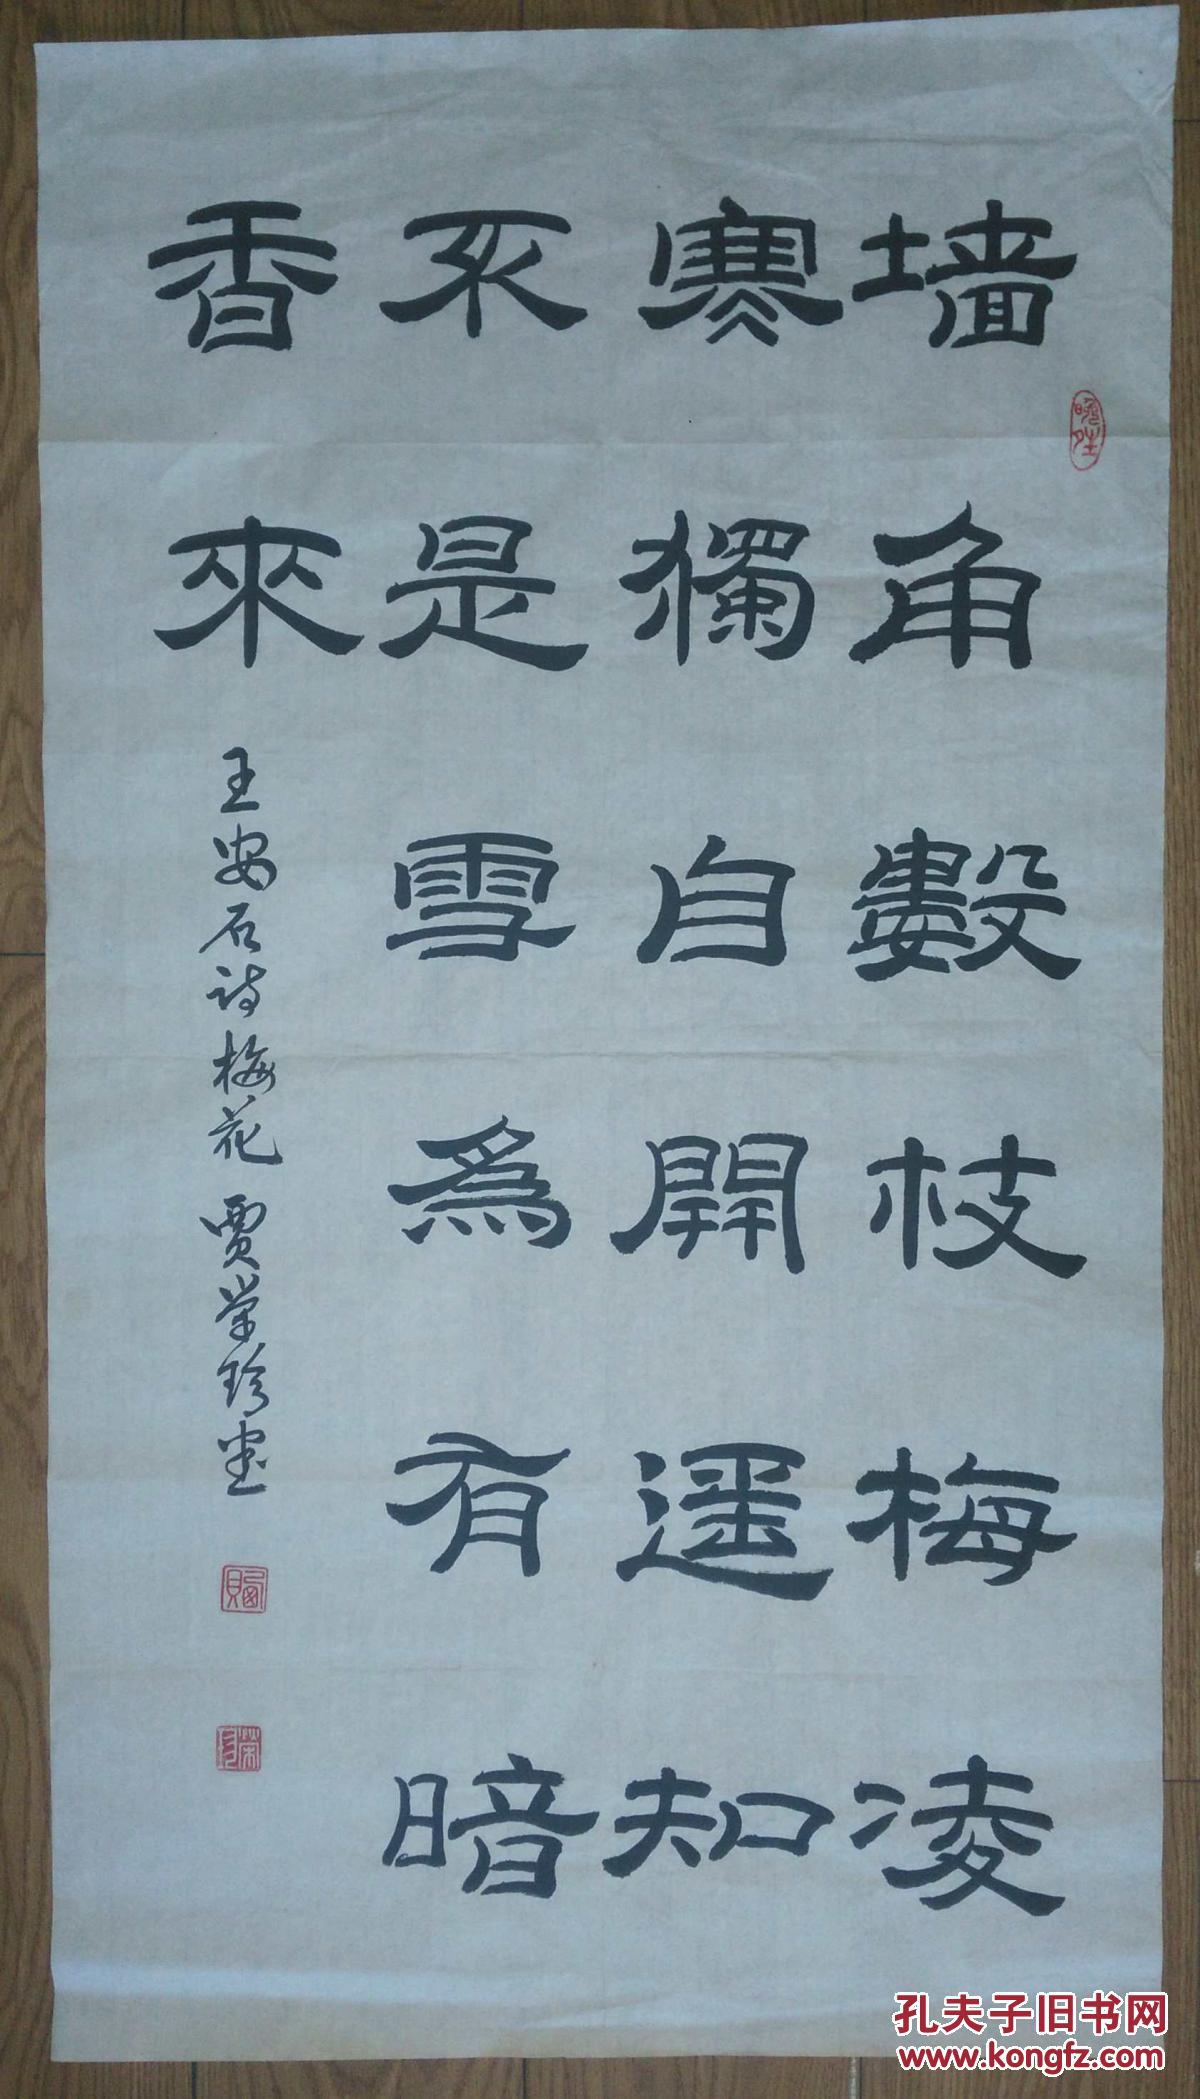 墙角數枝梅凌
寒獨自開遥知
不是雪爲有暗
香來
王安石诗梅花 贾荣珍书
孔夫子旧书网
www.kongfz.com